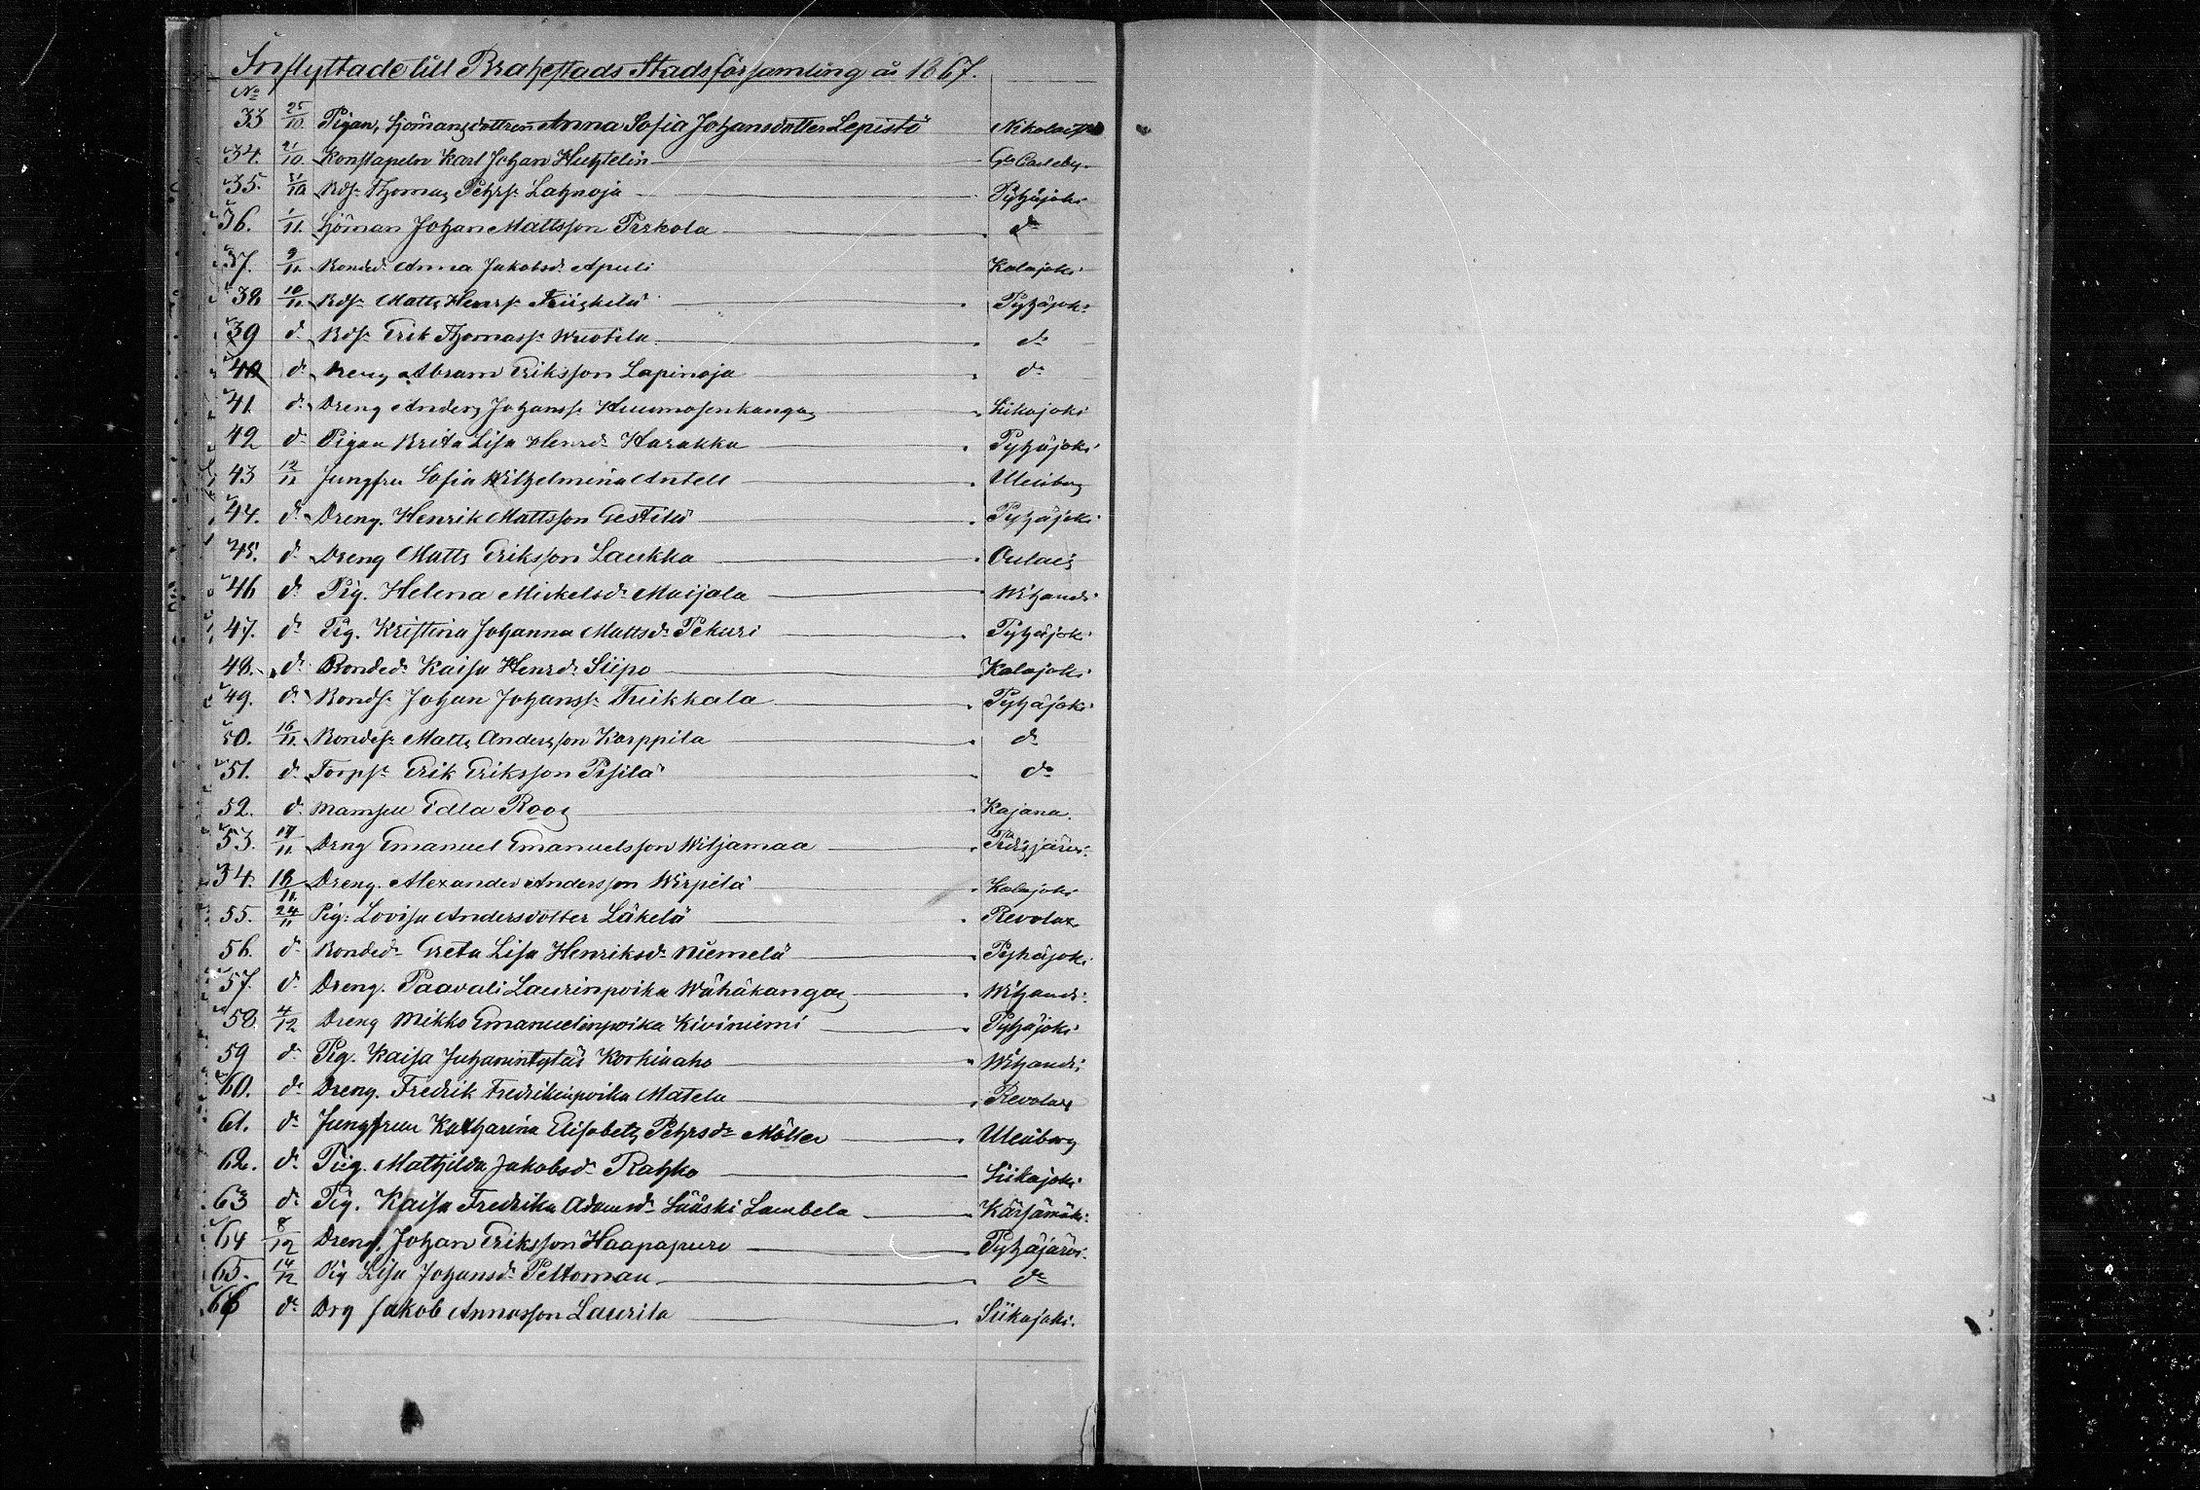 Inflyttade till Brahestads Stadsförsamling år 1867.
No
33 25/10 Pigan, Sjömansdottren Anna Sofia Johansdotter Lepistö Nikolaist
34. 21/10 Konstapeln Karl Johan Huhtelin Gla Carleby
35. 31/10 Bds. Thomas Pehrs. Lahnoja Pyhäjoki
36. 1/11 Sjöman Johan Mattsson Pirkola do
37. 9/11 Bonded. Anna Jakobsd. Apuli Kalajoki
38 10/11 Bds. Matts Henrs. Pyhäjoki
39 do Bds. Erik Thomass. Wuotila do
40 do Dreng Abram Eriksson Lapinoja do
41 do Dreng Anders Johanss. Huumosenkangas Siikajoki
42 do Pigan Brita Lisa Henrsd. Harakka Pyhäjoki
43 12/11 Jungfru Sofia Wilhelmina Antell Uleåborg
44. do Dreng. Henrik Mattsson Gestilä Pyhäjoki
45. do Dreng Matts Eriksson Laukka Oulais
46 do Pig. Helena Mickelsd. Maijala Wihandi
47. do Pig. Kristina Johanna Mattsd. Pekuri Pyhäjoki
48. do Bonded. Kaisa Henrsd. Siipo Kalajoki
49. do Bonds. Johan Johanss. Tuikkala Pyhäjoki
50. 16/11 Bondes. Matts Andersson Karppila do
51. do Torps. Erik Eriksson Pisilä do
52. do Mamsell Edla Roos Kajana.
53. 17/11 Dreng Emanuel Emanuelsson Wiljamaa Pidisjärvi
34. 18/11 Dreng. Alexander Andersson Wirpilä Kalajoki
55. 24/11 Pig: Lovisa Andersdotter Läkelä Revolax
56. do Bonded. Greta Lisa Henriksd. Niemelä Pyhäjoki
57. do Dreng. Paavali Laurinpoika Wähäkangas Wihandi
58 4/12 Dreng Mikko Emanuelinpoika Kiviniemi Pyhäjoki
59 do Pig. Kaisa Juhanintytär Korkiaaho Wihandi
60. do Dreng. Fredrik Fredrikinpoika Matela Revolax
61. do Jungfrun Katharina Elisabeth Pehrsdr Möller Uleåborg
62. do Pig. Mathilda Jakobsd. Rahko Siikajoki
63 do Pig. Kaisa Fredrika Adamsd. Sääski Lambela Kärsämäki
64 8/12 Dreng. Johan Eriksson Haapapuro Pyhäjärvi
65. 14/12 Pig Lisa Johansd. Peltomaa do
66 do Drg Jakob Annasson Laurila Siikajoki.